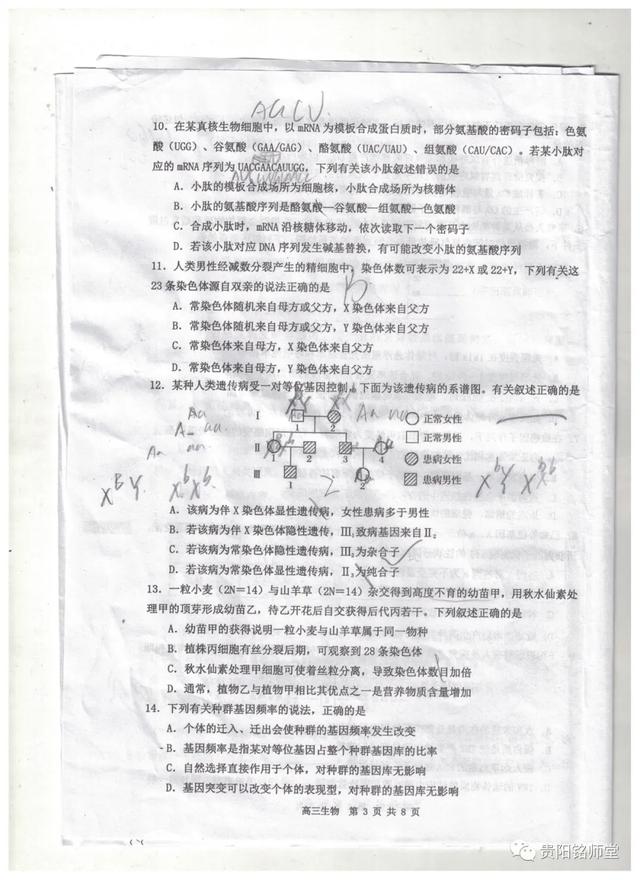 AUCU
10. 在某真核生物细胞中，以 mRNA 为模板合成蛋白质时，部分氨基酸的密码子包括：色氨
酸（UGG）、谷氨酸（GAA/GAG）、酪氨酸（UAC/UAU）、组氨酸（CAU/CAC）。若某小肽对
应的 mRNA 序列为 UACGAACAUUGG，下列有关该小肽叙述错误的是
A．小肽的模板合成场所为细胞核，小肽合成场所为核糖体
B．小肽的氨基酸序列是酪氨酸—谷氨酸—组氨酸—色氨酸
C．合成小肽时，mRNA 沿核糖体移动，依次读取下一个密码子
D．若该小肽对应 DNA 序列发生碱基替换，有可能改变小肽的氨基酸序列
11．人类男性经减数分裂产生的精细胞中，染色体数可表示为 22+X 或 22+Y，下列有关这
23 条染色体源自双亲的说法正确的是
B
A．常染色体随机来自母方或父方，X 染色体来自父方
B．常染色体随机来自母方或父方，Y 染色体来自父方
C．常染色体来自母方，X 染色体来自父方
D．常染色体来自母方，Y 染色体来自父方
12．某种人类遗传病受一对等位基因控制，下面为该遗传病的系谱图。有关叙述正确的是
Aa
A_ aa
Aa aa
Ⅰ 1 2 Aa aa 正常女性
正常男性
Ⅱ 1 2 3 4 患病女性
Ⅲ 1 2 患病男性
X^B Y X^b X^b
X^b Y X^B X^b
A．该病为伴 X 染色体显性遗传病，女性患病多于男性
B．若该病为伴 X 染色体隐性遗传，Ⅲ₁致病基因来自Ⅱ₂
C．若该病为常染色体隐性遗传，Ⅲ₂为杂合子
D．若该病为常染色体显性遗传，Ⅱ₃为纯合子
13．一粒小麦（2N＝14）与山羊草（2N＝14）杂交得到高度不育的幼苗甲，用秋水仙素处
理甲的顶芽形成幼苗乙，待乙开花后自交获得后代丙若干。下列叙述正确的是
A．幼苗甲的获得说明一粒小麦与山羊草属于同一物种
B．植株丙细胞有丝分裂后期，可观察到 28 条染色体
C．秋水仙素处理甲细胞可使着丝粒分离，导致染色体数目加倍
D．通常，植物乙与植物甲相比其优点之一是营养物质含量增加
14．下列有关种群基因频率的说法，正确的是
A．个体的迁入、迁出会使种群的基因频率发生改变
B．基因频率是指某对等位基因占整个种群基因库的比率
C．自然选择直接作用于个体，对种群的基因库无影响
D．基因突变可以改变个体的表现型，对种群的基因库无影响
高三生物 第 3 页 共 8 页
贵阳铭师堂